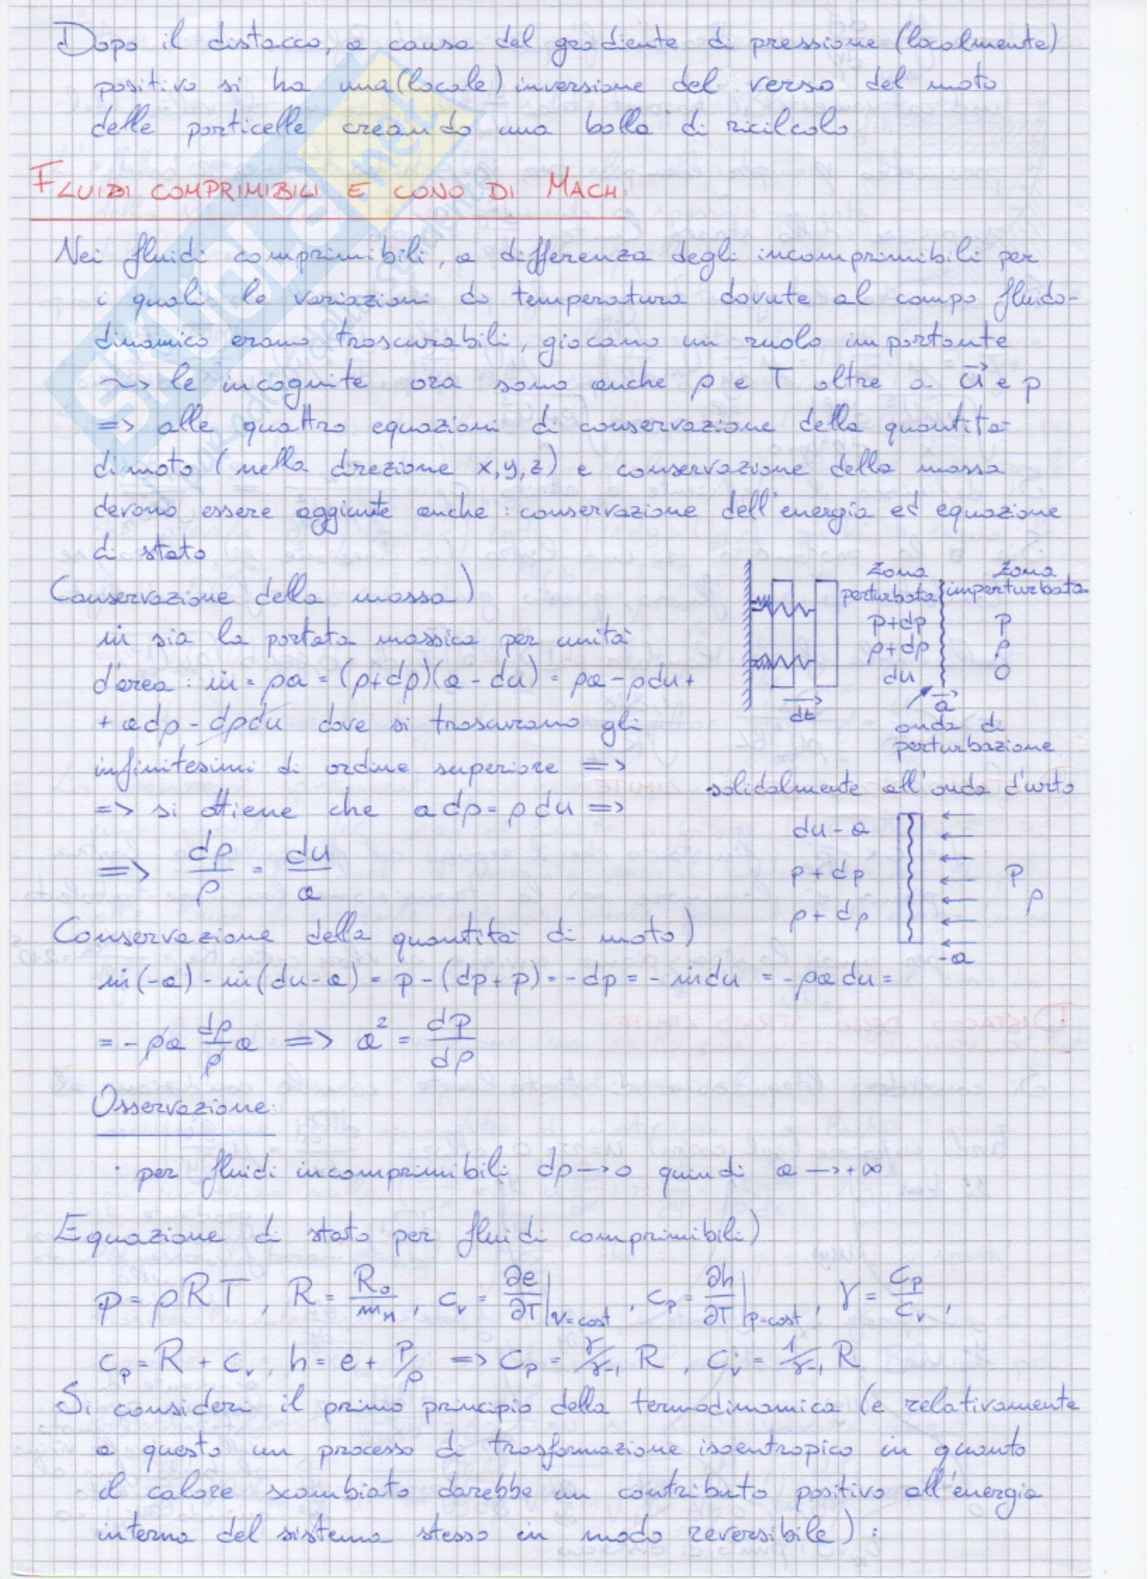 Dopo il distacco, a causa del gradiente di pressione (localmente)
positivo si ha una (locale) inversione del verso del moto
delle particelle creando una bolla di ricilcolo
FLUIDI COMPRIMIBILI E CONO DI MACH
Nei fluidi comprimibili, a differenza degli incomprimibili per
i quali le variazioni di temperatura dovute al campo fluido-
dinamico erano trascurabili, giocano un ruolo importante
~> le incognite ora sono anche ρ e T oltre a u⃗ e p
=> alle quattro equazioni di conservazione della quantità
di moto (nella direzione x,y,z) e conservazione della massa
devono essere aggiunte anche: conservazione dell'energia ed equazione
di stato
Conservazione della massa)
ṁ sia la portata massica per unità
d'area: ṁ = ρa = (ρ+dρ)(a-du) = ρa - ρdu +
+ adρ - dρdu dove si trascurano gli
infinitesimi di ordine superiore =>
=> si ottiene che a dρ = ρ du =>
=> dρ/ρ = du/a
zona perturbata
zona imperturbata
p+dp
p
ρ+dρ
ρ
du
0
dt
a
onda di
perturbazione
solidalmente all'onda d'urto
du-a
p+dp
p
ρ+dρ
ρ
-a
Conservazione della quantità di moto)
ṁ(-a) - ṁ(du-a) = p - (dp+p) = -dp = -ṁdu = -ρa du =
= -ρa dρ/ρ a => a² = dp/dρ
Osservazione:
· per fluidi incomprimibili dρ→0 quindi a→+∞
Equazione di stato per fluidi comprimibili)
p = ρRT, R = R₀/mₙ, cᵥ = ∂e/∂T|v=cost, cₚ = ∂h/∂T|p=cost, γ = cₚ/cᵥ,
cₚ = R + cᵥ, h = e + p/ρ => cₚ = γ/γ-1 R, cᵥ = 1/γ-1 R
Si consideri il primo principio della termodinamica (e relativamente
a questo un processo di trasformazione isoentropico in quanto
il calore scambiato darebbe un contributo positivo all'energia
interna del sistema stesso in modo reversibile):